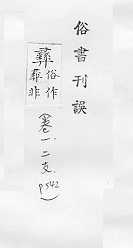 俗書刊誤
彝俗作
彛非
(卷一.二支
p542)